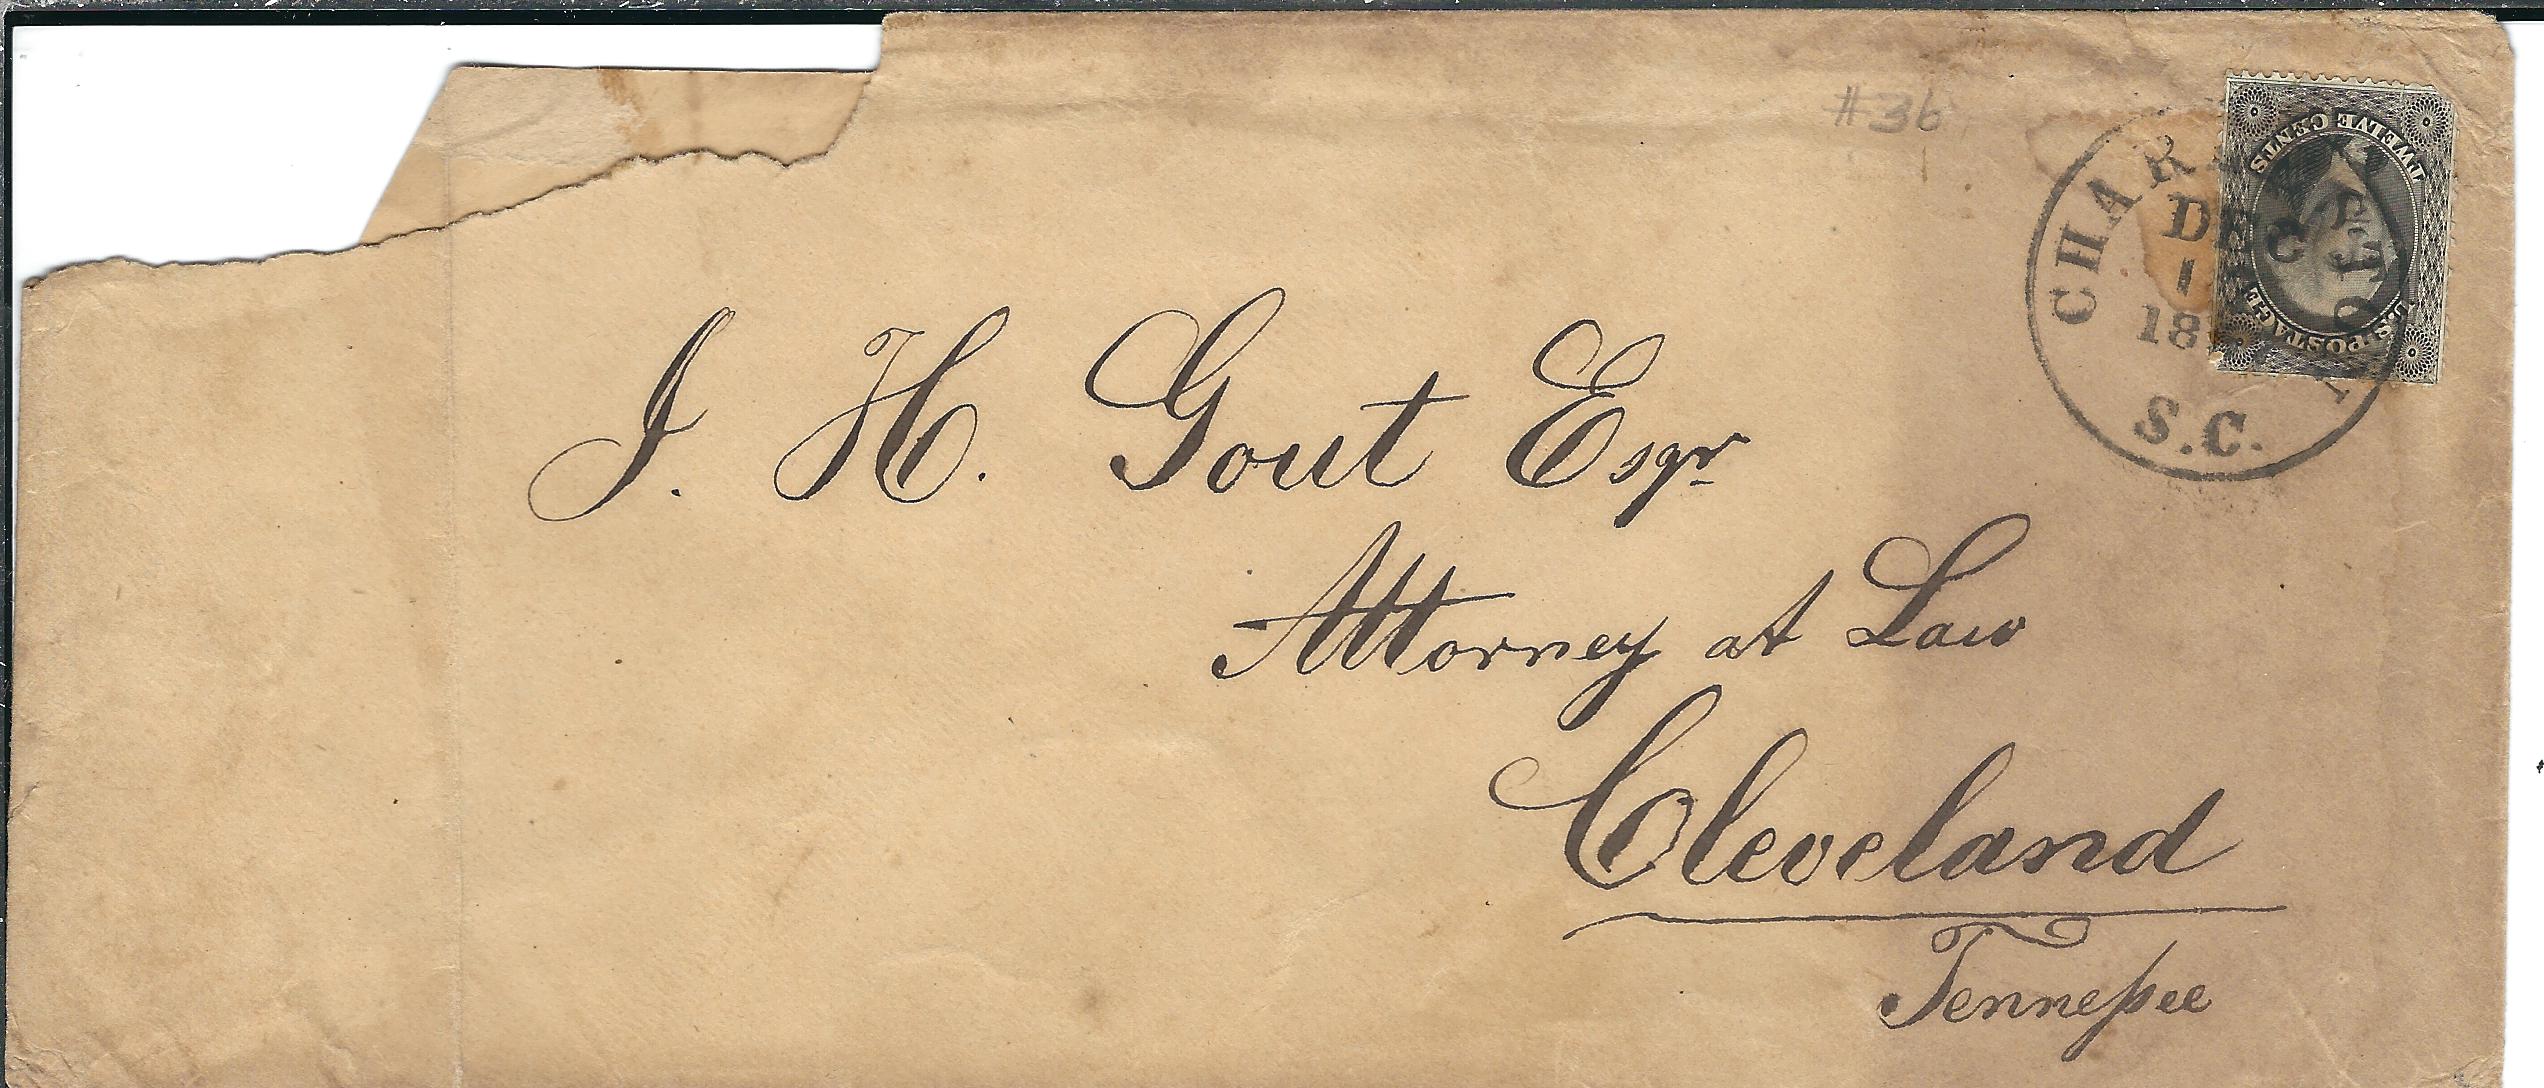 #36
TWELVE CENTS
U.S. POSTAGE
CHARLESTON
DEC
1
18
S.C.
J. H. Gout Esqr
Attorney at Law
Cleveland
Tennessee